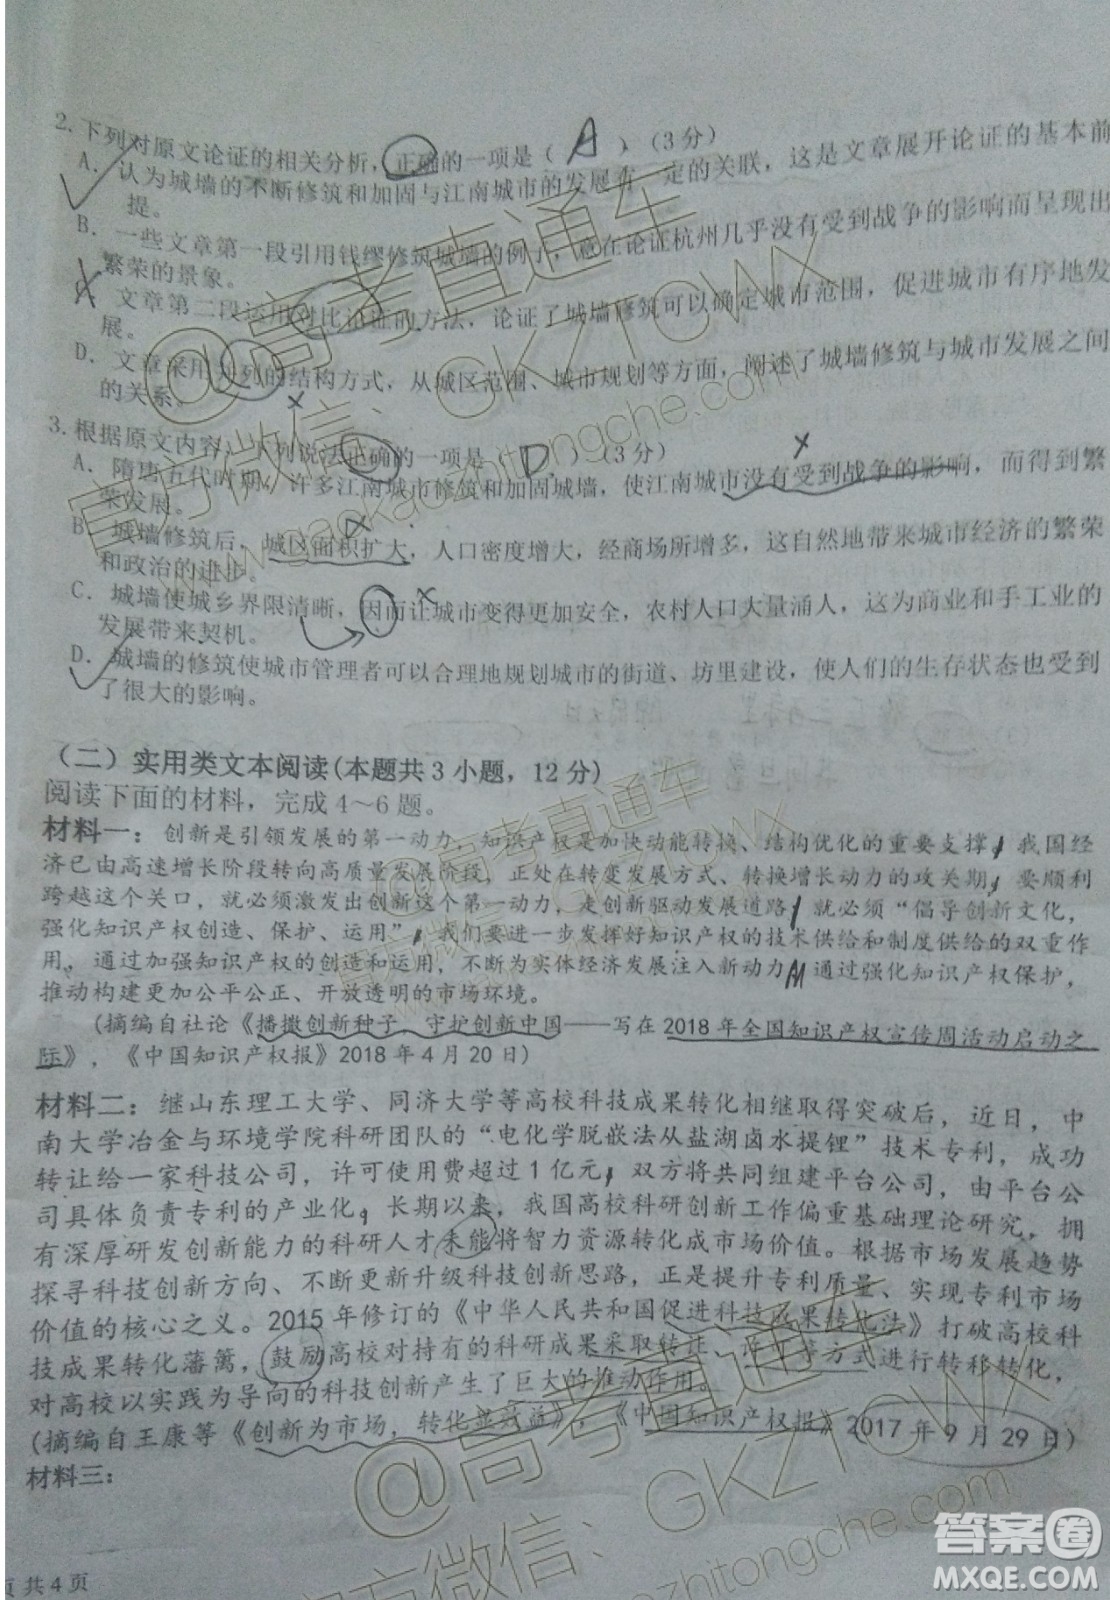 2. 下列对原文论证的相关分析，正确的一项是（ A ）（3分）
A. 认为城墙的不断修筑和加固与江南城市的发展有一定的关联，这是文章展开论证的基本前
提。
B. 一些文章第一段引用钱镠修筑城墙的例子，意在论证杭州几乎没有受到战争的影响而呈现出
繁荣的景象。
文章第二段运用对比论证的方法，论证了城墙修筑可以确定城市范围，促进城市有序地发
展。
D. 文章采用并列的结构方式，从城区范围、城市规划等方面，阐述了城墙修筑与城市发展之间
的关系。
3. 根据原文内容，下列说法正确的一项是（ D ）（3分）
A. 隋唐五代时期，许多江南城市修筑和加固城墙，使江南城市没有受到战争的影响，而得到繁
荣发展。
B. 城墙修筑后，城区面积扩大，人口密度增大，经商场所增多，这自然地带来城市经济的繁荣
和政治的进步。
C. 城墙使城乡界限清晰，因而让城市变得更加安全，农村人口大量涌入，这为商业和手工业的
发展带来契机。
D. 城墙的修筑使城市管理者可以合理地规划城市的街道、坊里建设，使人们的生存状态也受到
了很大的影响。
（二）实用类文本阅读(本题共3小题，12分)
阅读下面的材料，完成4～6题。
材料一：创新是引领发展的第一动力，知识产权是加快动能转换、结构优化的重要支撑，我国经
济已由高速增长阶段转向高质量发展阶段，正处在转变发展方式、转换增长动力的攻关期，要顺利
跨越这个关口，就必须激发出创新这个第一动力，走创新驱动发展道路，就必须“倡导创新文化，
强化知识产权创造、保护、运用”，我们要进一步发挥好知识产权的技术供给和制度供给的双重作
用，通过加强知识产权的创造和运用，不断为实体经济发展注入新动力，通过强化知识产权保护，
推动构建更加公平公正、开放透明的市场环境。
(摘编自社论《播撒创新种子，守护创新中国——写在2018年全国知识产权宣传周活动启动之
际》，《中国知识产权报》2018年4月20日)
材料二：继山东理工大学、同济大学等高校科技成果转化相继取得突破后，近日，中
南大学冶金与环境学院科研团队的“电化学脱嵌法从盐湖卤水提锂”技术专利，成功
转让给一家科技公司，许可使用费超过1亿元，双方将共同组建平台公司，由平台公
司具体负责专利的产业化。长期以来，我国高校科研创新工作偏重基础理论研究，拥
有深厚研发创新能力的科研人才未能将智力资源转化成市场价值。根据市场发展趋势
探寻科技创新方向、不断更新升级科技创新思路，正是提升专利质量、实现专利市场
价值的核心之义。2015年修订的《中华人民共和国促进科技成果转化法》打破高校科
技成果转化藩篱，鼓励高校对持有的科研成果采取转让、许可等方式进行转移转化，
对高校以实践为导向的科技创新产生了巨大的推动作用。
(摘编自王康等《创新为市场，转化显效益》，《中国知识产权报》2017年9月29日)
材料三：
页 共4页
@高考直通车
官方微信：GKZTCWX
www.gaokaozhitongche.com
@高考直通车
官方微信：GKZTCWX
@高考直通车
官方微信：GKZTCWX
答案圈
MXQE.COM